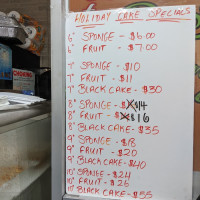 HOLIDAY CAKE SPECIALS
6" SPONGE - $6.00
6" FRUIT - $7.00
7" SPONGE - $10
7" FRUIT - $11
7" BLACK CAKE - $30
8" SPONGE - $14
8" FRUIT - $16
8" BLACK CAKE - $35
9" SPONGE - $18
9" FRUIT - $20
9" BLACK CAKE - $40
10" SPONGE - $24
10" FRUIT - $26
10" BLACK CAKE - $55